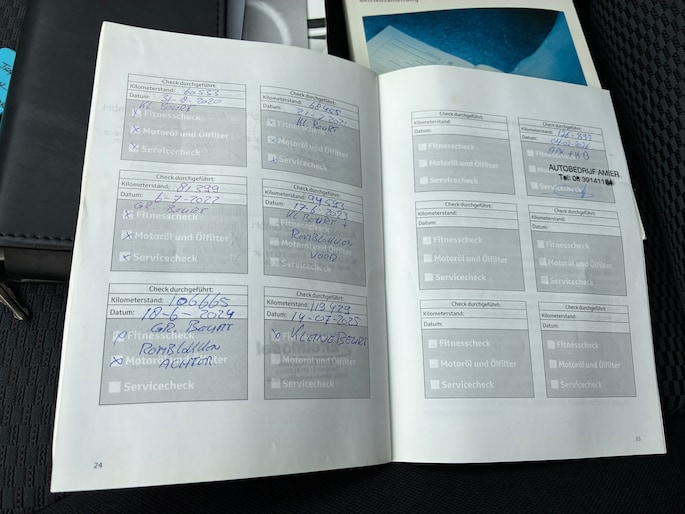 Betriebsanleitung
Check durchgeführt:
Kilometerstand: 60555
Datum: 31-8-2020
KL BEURT
Fitnesscheck
Motoröl und Ölfilter
Servicecheck
Check durchgeführt:
Kilometerstand: 68465
Datum: 21-7-2021
KL BEURT
Fitnesscheck
Motoröl und Ölfilter
Servicecheck
Check durchgeführt:
Kilometerstand: 81399
Datum: 6-7-2022
GR BEURT
Fitnesscheck
Motoröl und Ölfilter
Servicecheck
Check durchgeführt:
Kilometerstand: 94553
Datum: 17-6-2023
KL BEURT +
Fitnesscheck
REMBLOKKEN
Motoröl und Ölfilter
VOOR
Servicecheck
Check durchgeführt:
Kilometerstand: 106665
Datum: 18-6-2024
GR. BEURT
Fitnesscheck
REMBLOKKEN
Motoröl und Ölfilter
ACHTER
Servicecheck
Check durchgeführt:
Kilometerstand: 113429
Datum: 14-07-2025
KLEINE BEURT
Fitnesscheck
Motoröl und Ölfilter
Servicecheck
24
Check durchgeführt:
Kilometerstand:
Datum:
Fitnesscheck
Motoröl und Ölfilter
Servicecheck
Check durchgeführt:
Kilometerstand:
Datum:
AUTOBEDRIJF AMIER
Servicecheck
Check durchgeführt:
Kilometerstand:
Datum:
Fitnesscheck
Motoröl und Ölfilter
Servicecheck
Check durchgeführt:
Kilometerstand:
Datum:
Fitnesscheck
Motoröl und Ölfilter
Servicecheck
Check durchgeführt:
Kilometerstand:
Datum:
Fitnesscheck
Motoröl und Ölfilter
Servicecheck
Check durchgeführt:
Kilometerstand:
Datum:
Fitnesscheck
Motoröl und Ölfilter
Servicecheck
25